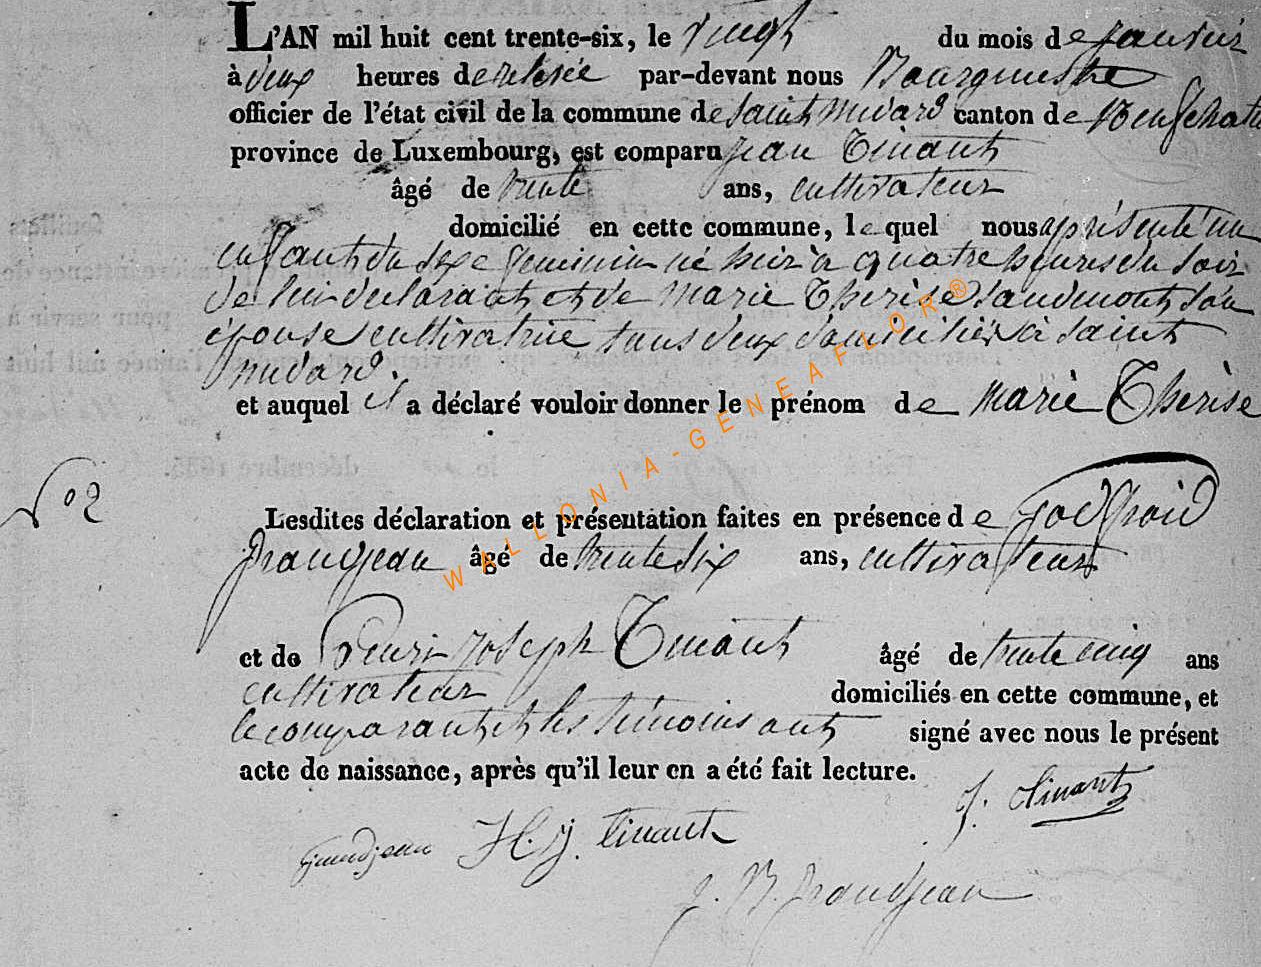 L'AN mil huit cent trente-six, le vingt du mois de janvier
à deux heures de relevée par-devant nous Bourgmestre
officier de l'état civil de la commune de saint médard canton de Neufchateau
province de Luxembourg, est comparu jean Tinant
âgé de trente ans, cultivateur
domicilié en cette commune, le quel nous a présenté un
enfant du sexe feminin né hier à quatre heures du soir
de lui declarant et de Marie Thérèse son
épouse cultivatrice tous deux domiciliés à saint
médard.
et auquel il a déclaré vouloir donner le prénom de Marie Thérèse
N° 2
Lesdites déclaration et présentation faites en présence de godfroid
grandjean âgé de trente six ans, cultivateur
et de henri joseph Tinant âgé de trente cinq ans
cultivateur domiciliés en cette commune, et
le comparant et les témoins ont signé avec nous le présent
acte de naissance, après qu'il leur en a été fait lecture.
J. tinant
grandjean H. J. tinant
J. B. grandjean
WALLONIA-GENEAFLOR®